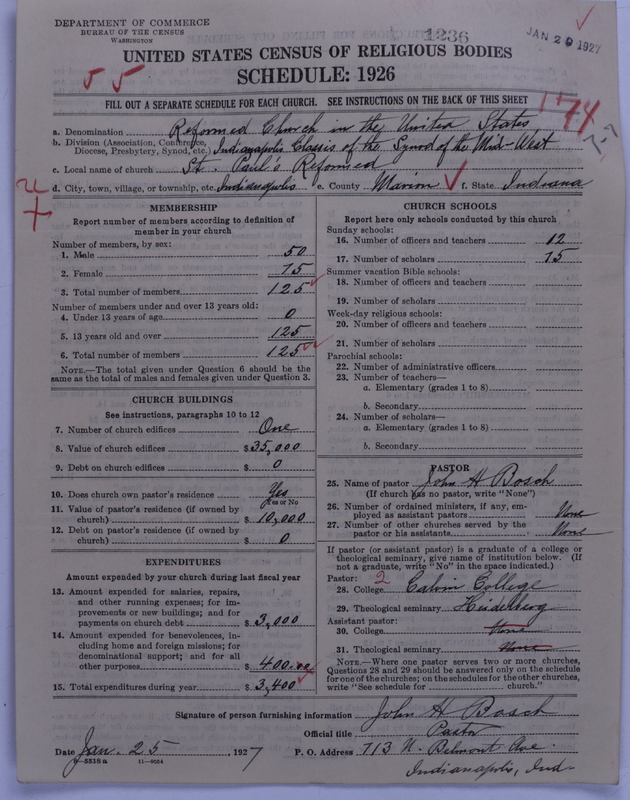 DEPARTMENT OF COMMERCE
BUREAU OF THE CENSUS
WASHINGTON
1236
JAN 29 1927
UNITED STATES CENSUS OF RELIGIOUS BODIES
SCHEDULE: 1926
55
FILL OUT A SEPARATE SCHEDULE FOR EACH CHURCH. SEE INSTRUCTIONS ON THE BACK OF THIS SHEET
11-74
7-7
a. Denomination Reformed Church in the United States
b. Division (Association, Conference, Diocese, Presbytery, Synod, etc.) Indianapolis Classis of the Synod of the Mid-West
c. Local name of church St. Paul's Reformed
d. City, town, village, or township, etc. Indianapolis e. County Marion f. State Indiana
MEMBERSHIP
Report number of members according to definition of
member in your church
Number of members, by sex:
1. Male 50
2. Female 75
3. Total number of members 125
Number of members under and over 13 years old:
4. Under 13 years of age 0
5. 13 years old and over 125
6. Total number of members 125
NOTE.—The total given under Question 6 should be the
same as the total of males and females given under Question 3.
CHURCH BUILDINGS
See instructions, paragraphs 10 to 12
7. Number of church edifices One
8. Value of church edifices $35,000
9. Debt on church edifices $ 0
10. Does church own pastor's residence Yes
Yes or No
11. Value of pastor's residence (if owned by
church) $ 10,000
12. Debt on pastor's residence (if owned by
church) $ 0
EXPENDITURES
Amount expended by your church during last fiscal year
13. Amount expended for salaries, repairs,
and other running expenses; for im-
provements or new buildings; and for
payments on church debt $ 3,000
14. Amount expended for benevolences, in-
cluding home and foreign missions; for
denominational support; and for all
other purposes $ 400.00
15. Total expenditures during year $ 3,400
CHURCH SCHOOLS
Report here only schools conducted by this church
Sunday schools:
16. Number of officers and teachers 12
17. Number of scholars 75
Summer vacation Bible schools:
18. Number of officers and teachers
19. Number of scholars
Week-day religious schools:
20. Number of officers and teachers
21. Number of scholars
Parochial schools:
22. Number of administrative officers
23. Number of teachers—
a. Elementary (grades 1 to 8)
b. Secondary
24. Number of scholars—
a. Elementary (grades 1 to 8)
b. Secondary
PASTOR
25. Name of pastor John H Bosch
(If church has no pastor, write "None")
26. Number of ordained ministers, if any, em-
ployed as assistant pastors None
27. Number of other churches served by the
pastor or his assistants None
If pastor (or assistant pastor) is a graduate of a college or
theological seminary, give name of institution below. (If
not a graduate, write "No" in the space indicated.)
Pastor: 2
28. College Calvin College
29. Theological seminary Heidelberg
Assistant pastor:
30. College None
31. Theological seminary None
NOTE.—Where one pastor serves two or more churches,
Questions 28 and 29 should be answered only on the schedule
for one of the churches; on the schedules for the other churches,
write "See schedule for church."
Signature of person furnishing information John H Bosch
Official title Pastor
Date Jan. 25, 1927 P. O. Address 713 N. Belmont Ave.
8-5518a 11-9054
Indianapolis, Ind.